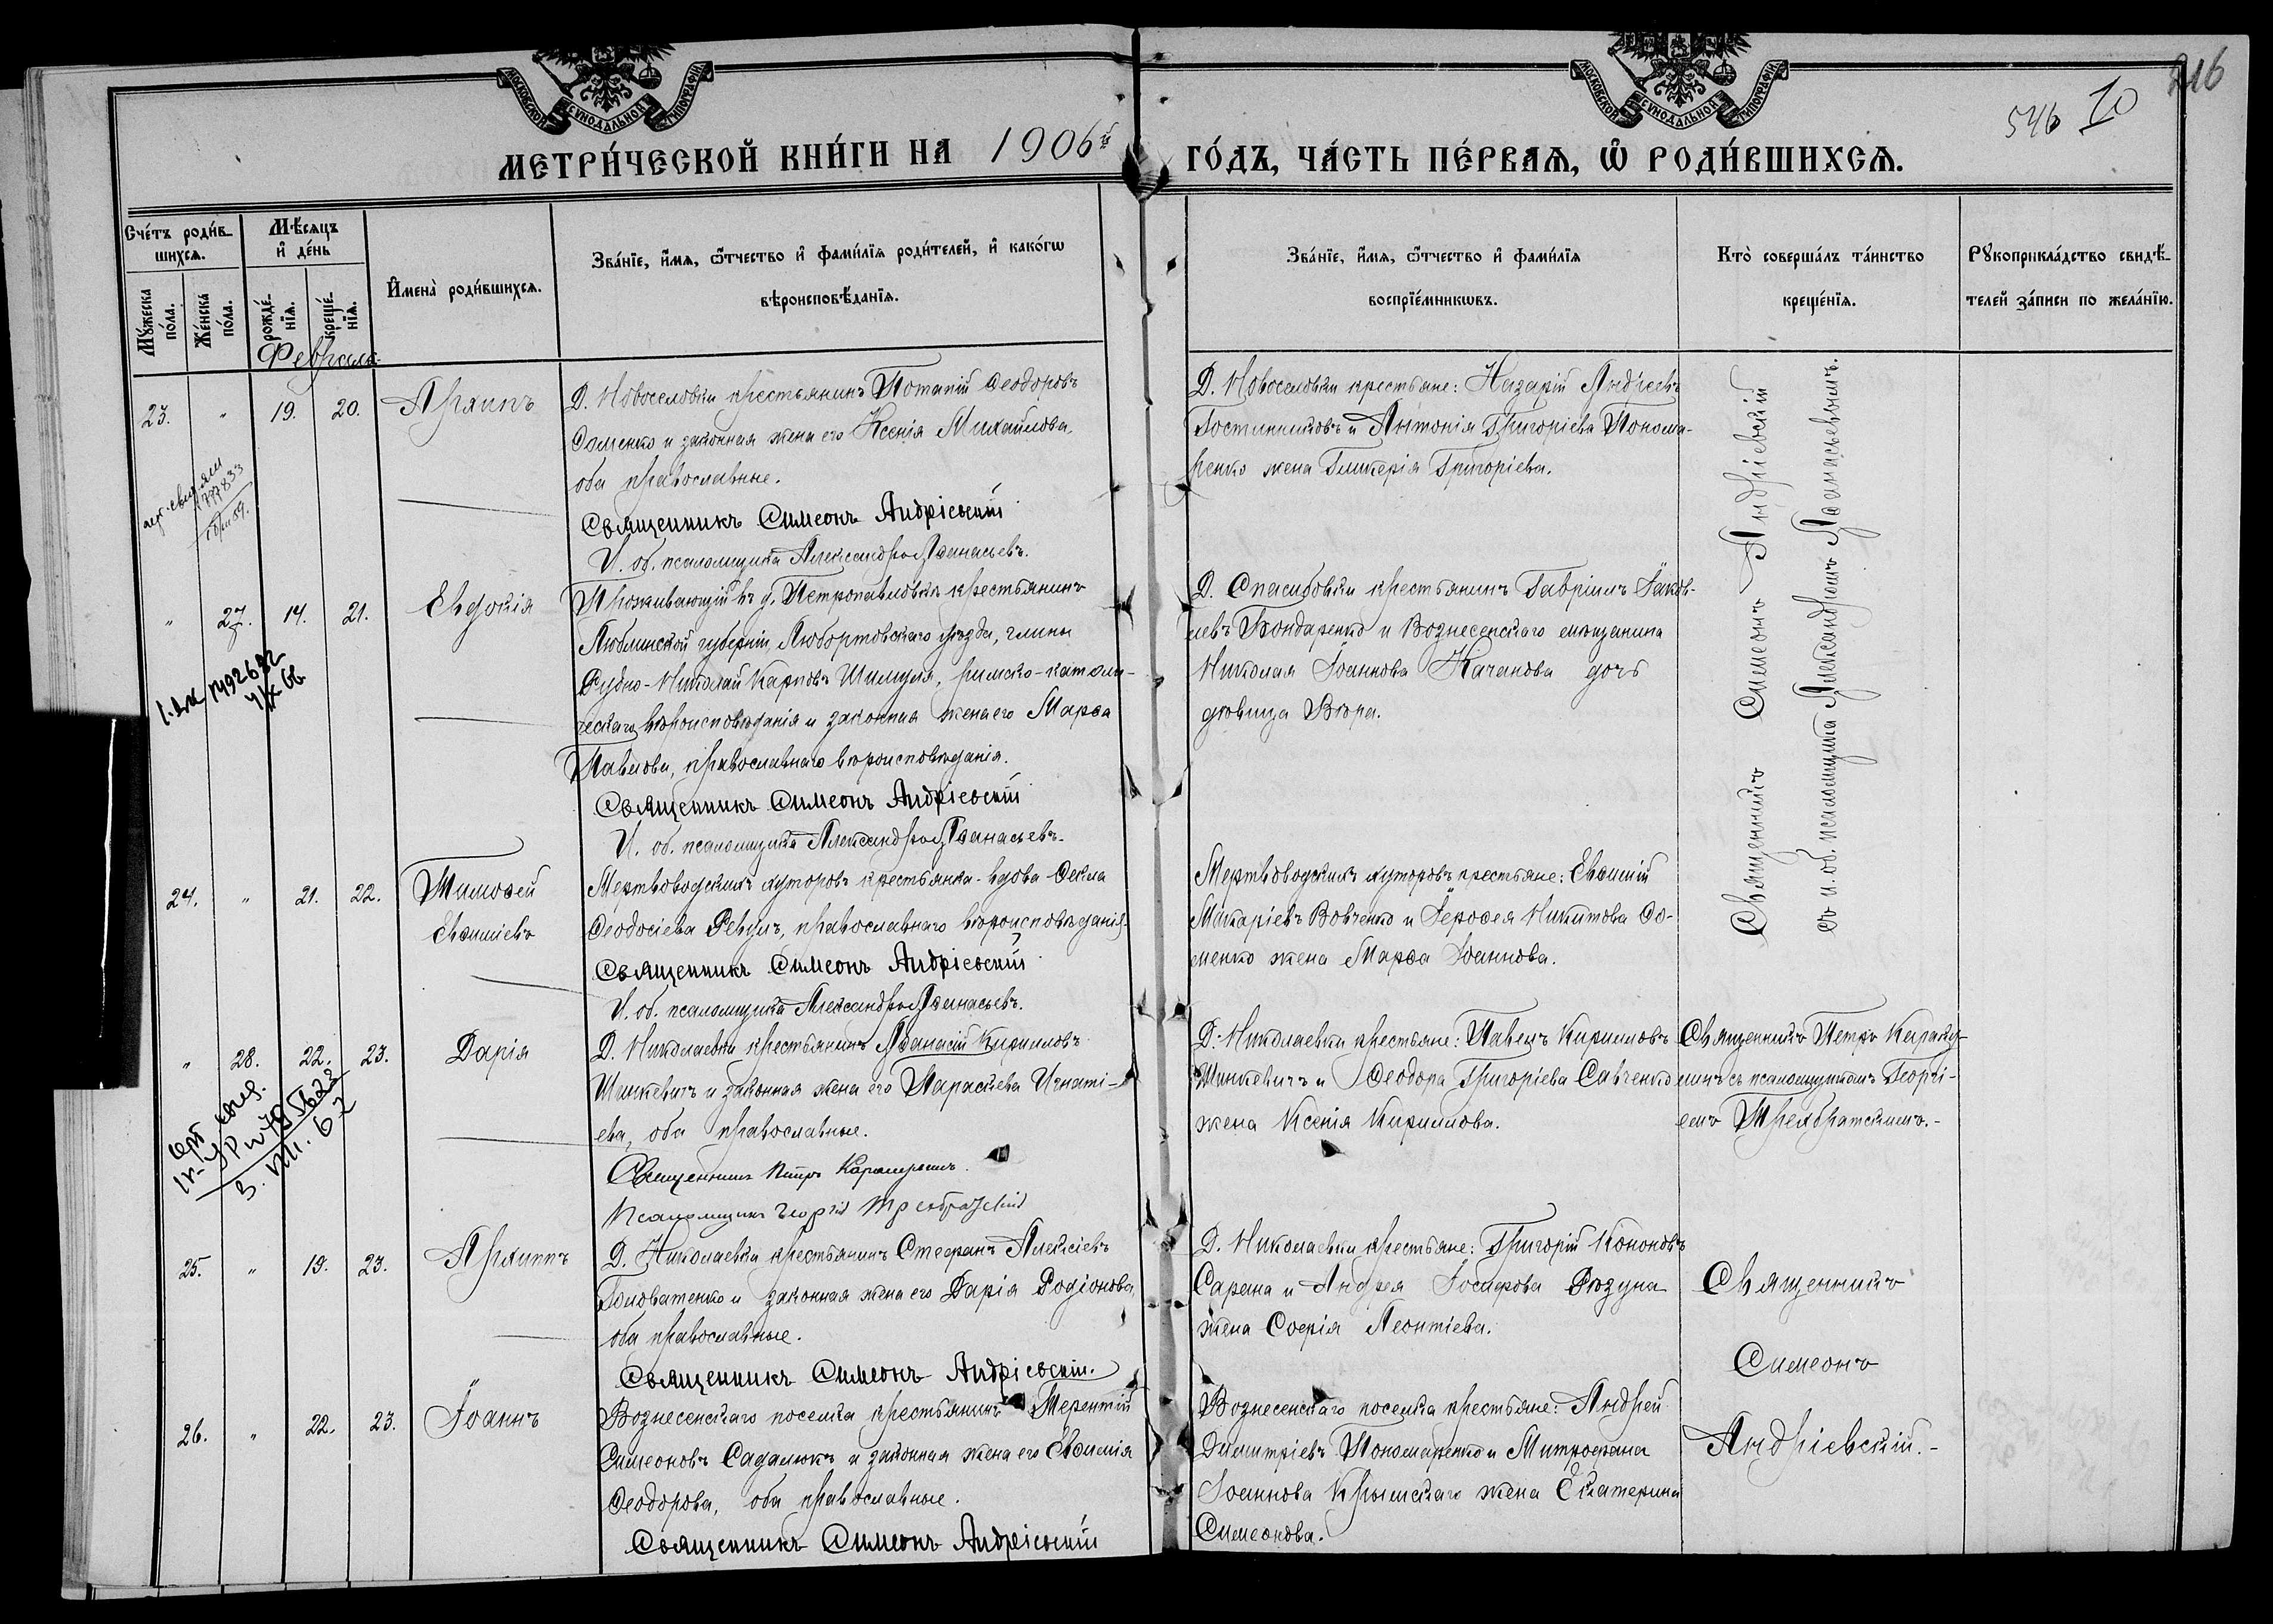 МОСКОВСКОЙ СѴНОДАЛЬНОЙ ТИПОГРАФІИ
МОСКОВСКОЙ СѴНОДАЛЬНОЙ ТИПОГРАФІИ
546 10
МЕТРИ́ЧЕСКОЙ КНИ́ГИ НА 1906й ГО́ДЪ, ЧА́СТЬ ПЕ́РВАѦ, Ѡ РОДИ́ВШИХСѦ.
Сче́тъ роди́в-
шихсѧ.
Мѣ́сѧцъ
и҆ де́нь
Мꙋ́жеска
по́ла.
Же́нска
по́ла.
рожде́-
нїѧ.
креще́-
нїѧ.
И҆мена̀ роди́вшихсѧ.
Зва́нїе, и҆́мѧ, ѻ҆́тчество и҆ фами́лїѧ роди́телей, и҆ како́гѡ
вѣроисповѣ́данїѧ.
Зва́нїе, и҆́мѧ, ѻ҆́тчество и҆ фами́лїѧ
воспрїе́мникѡвъ.
Кто̀ соверша́лъ та́инство
креще́нїѧ.
Рꙋкоприкла́дство свидѣ́-
телей за́писи по жела́нїю.
Февраль
23. " 19. 20. Архипъ
Д. Новоселовки крестьянинъ Потапій Ѳеодоровъ
Ѳоменко и законная жена его Ксенія Михайлова,
оба православные.
Священникъ Симеонъ Андріевскій
И. об. псаломщика Александръ Аѳанасьевъ.
Д. Новоселовки крестьяне: Назарій Андреевъ
Гостинниковъ и Антонія Григоріева Понома-
ренко жена Гликерія Григоріева.
Священникъ Симеонъ Андріевскій
съ и. об. псаломщика Александромъ Аѳанасьевымъ.
" 27. 14. 21. Евдокія
Проживающій въ д. Петропавловкѣ крестьянинъ
Люблинской губерніи, Любортовскаго уѣзда, гмины
Рудно-Николай Карповъ Шимуля, римско-католи-
ческаго вѣроисповѣданія и законная жена его Марѳа
Павлова, православнаго вѣроисповѣданія.
Священникъ Симеонъ Андріевскій
И. об. псаломщика Александръ Аѳанасьевъ.
Д. Спасибовки крестьянинъ Гавріилъ Іаков-
левъ Бондаренко и Вознесенскаго мѣщанина
Николая Іоаннова Качанова дочь
дѣвица Вѣра.
24. " 21. 22. Тимоѳей
Евѳиміевъ
Мертвоводскихъ хуторовъ крестьянка-вдова Ѳекла
Ѳеодосіева Ревулъ, православнаго вѣроисповѣданія.
Священникъ Симеонъ Андріевскій
И. об. псаломщика Александръ Аѳанасьевъ.
Мертвоводскихъ хуторовъ крестьяне: Евѳимій
Макаріевъ Вовченко и Іероѳея Никитова Ѳо-
менко жена Марѳа Іоаннова.
" 28. 22. 23. Дарія
Д. Николаевки крестьянинъ Аѳанасій Кирилловъ
Шинкевичъ и законная жена его Параскева Игнаті-
ева, оба православные.
Священникъ Петръ
Псаломщикъ Георгій
Д. Николаевки крестьяне: Павелъ Кирилловъ
Шинкевичъ и Ѳеодора Григоріева Савченко
жена Ксенія Кириллова.
Священникъ Петръ
съ псаломщикомъ Георгі-
емъ
25. " 19. 23. Архипъ
Д. Николаевки крестьянинъ Стефанъ Алексіевъ
Головатенко и законная жена его Дарія Родіонова,
оба православные.
Священникъ Симеонъ Андріевскій.
Д. Николаевки крестьяне: Григорій Кононовъ
Сарана и Андрея Іосифова Рѣзуна
жена Софія Леонтіева.
Священникъ
Симеонъ
Андріевскій.-
26. " 22. 23. Іоаннъ
Вознесенскаго поселка крестьянинъ Терентій
Симеоновъ Садалюкъ и законная жена его Евѳимія
Ѳеодорова, оба православные.
Священникъ Симеонъ Андріевскій
Вознесенскаго поселка крестьяне: Андрей
Димитріевъ Пономаренко и Митрофана
Іоаннова Крымскаго жена Екатерина
Симеонова.